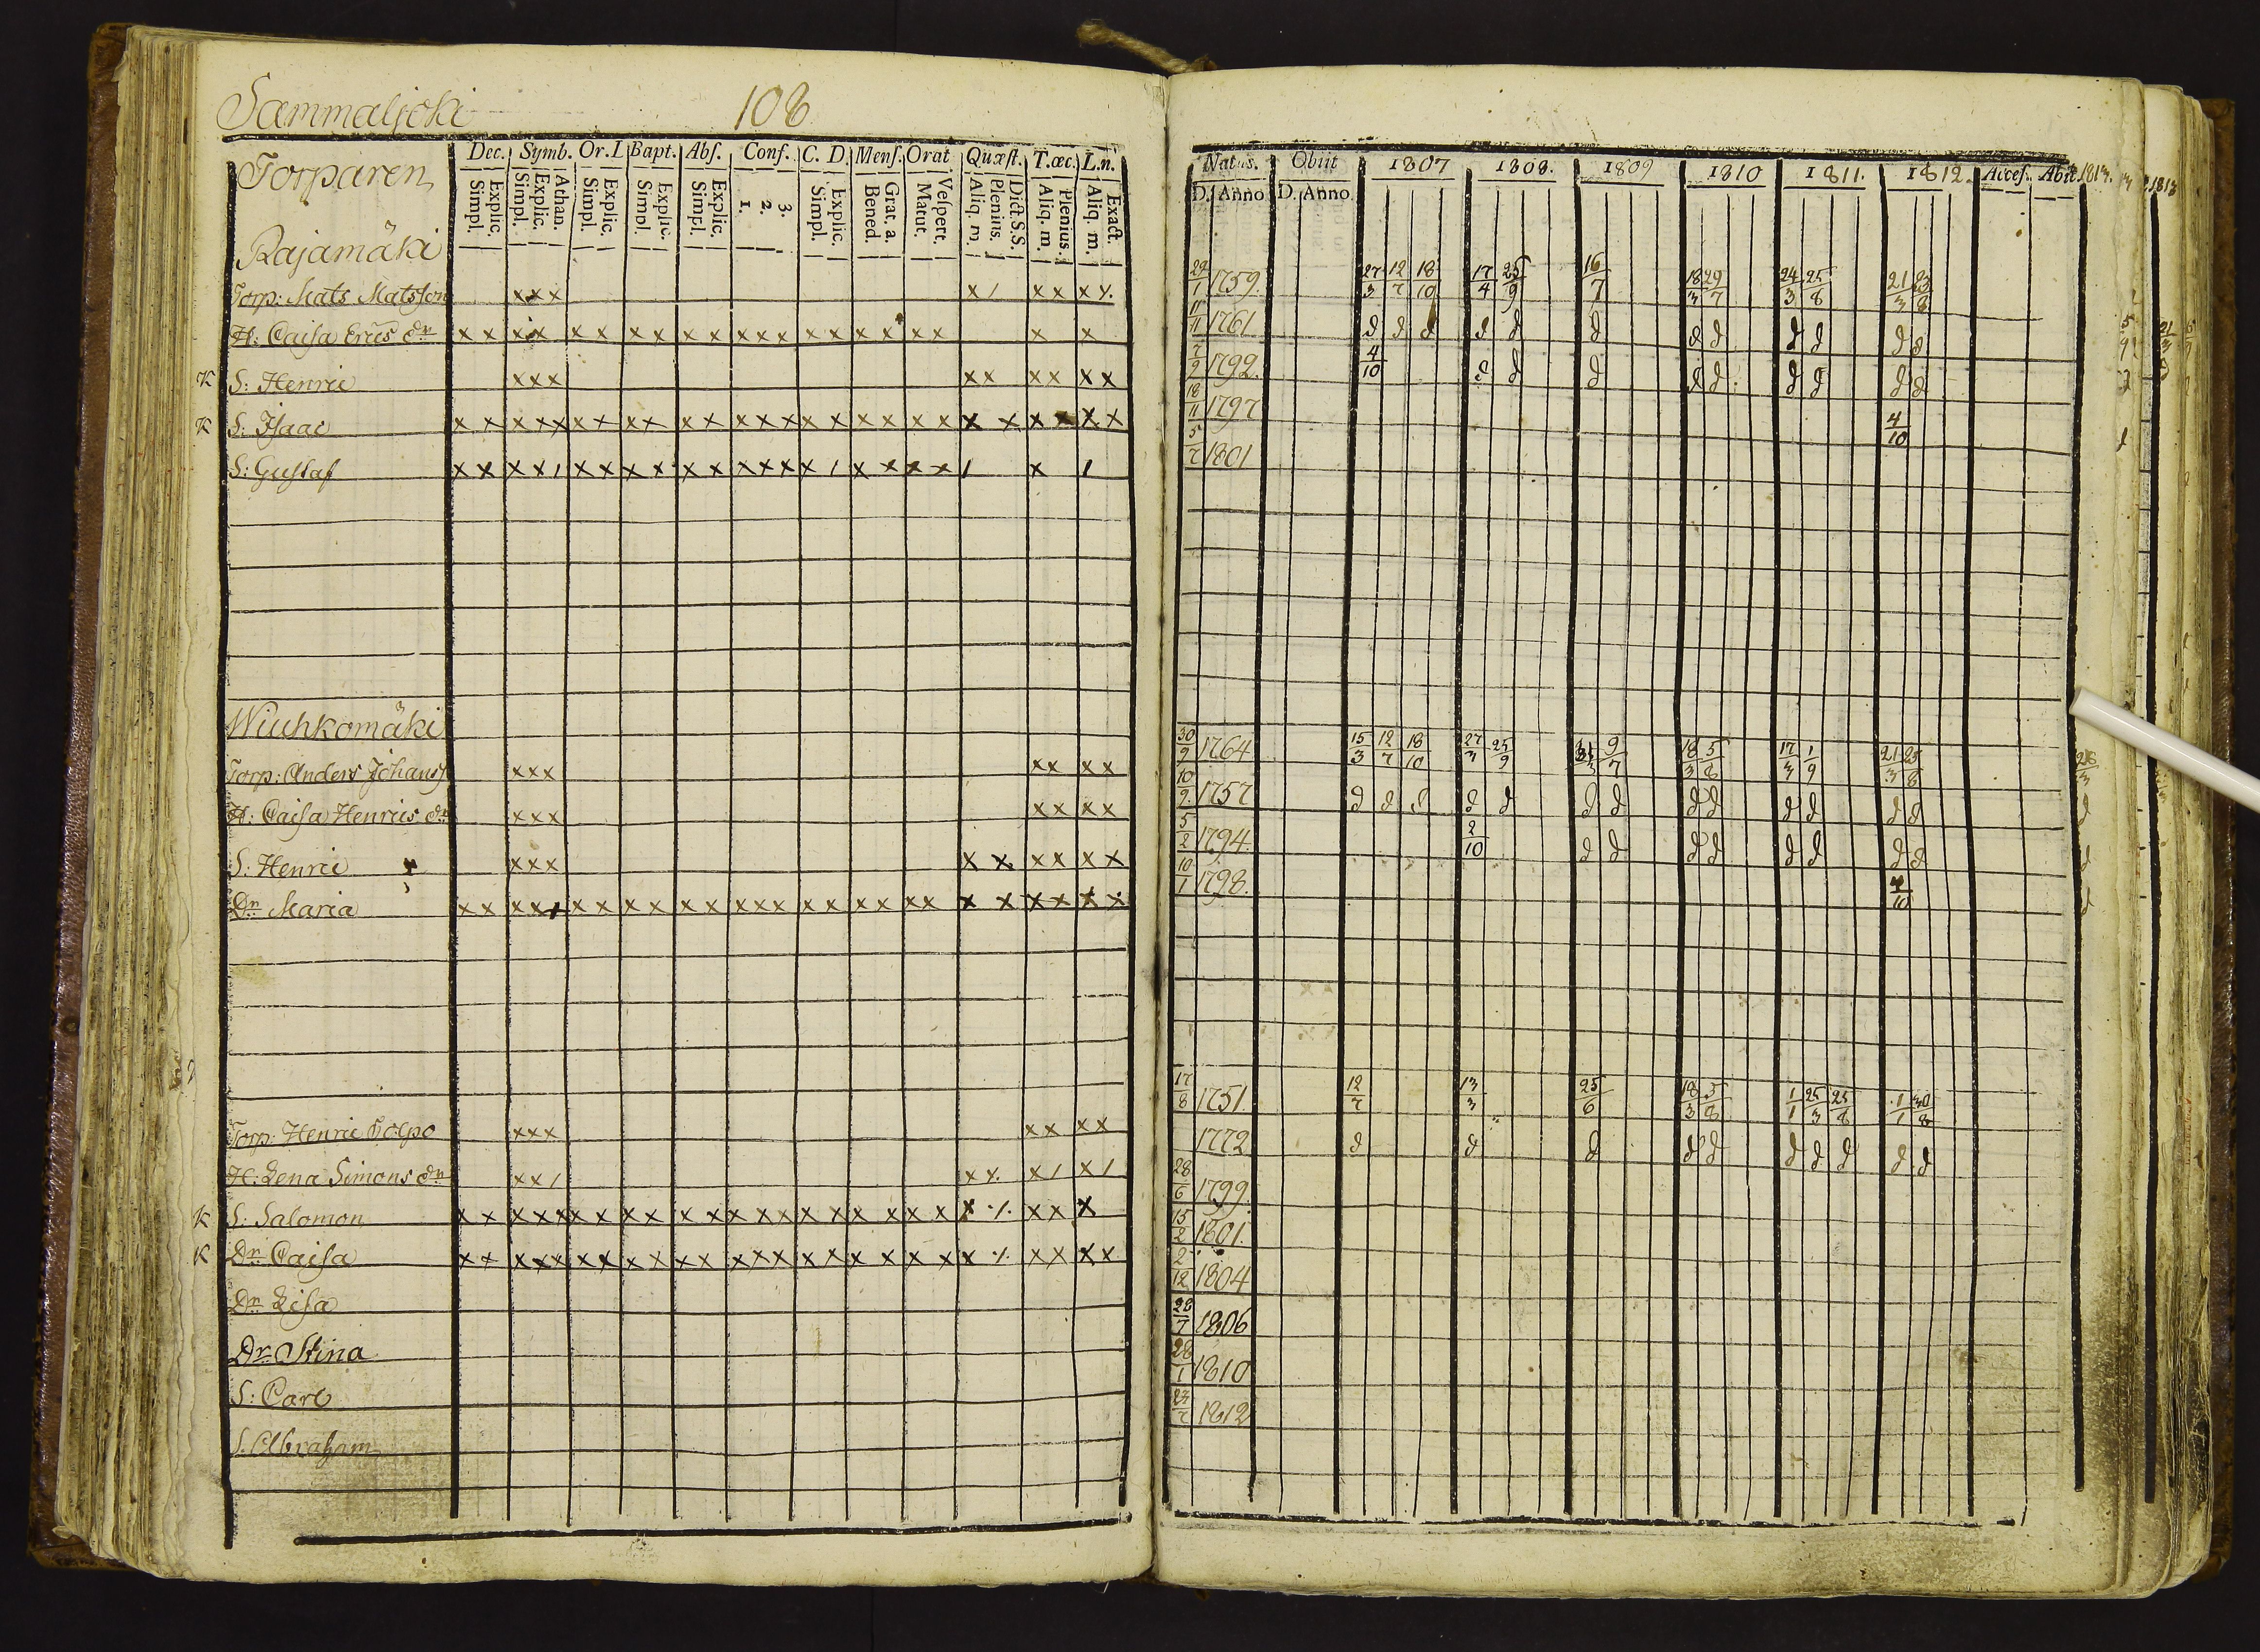 Sammaljoki 108
Torparen
Dec. Symb. Or. I Bapt. Abſ. Conf. C. D. Menſ. Orat Quæſt. T. œc. L. n.
Explic. Simpl. Athan. Explic. Simpl. Explic. Simpl. Explic. Simpl. Explic. Simpl. 3. 2. 1. Explic. Simpl. Grat. a. Bened. Veſpert. Matut. Dict. S.S. Plenius. Aliq. m. Plenius. Aliq. m. Exact. Aliq. m.
Natus. Obiit 1807 1808. 1809 1810 1811. 1812. Acceſ. Abit. 1813. 1813
D. Anno D. Anno
Rajamäki
Torp: Mats Matsson xxx x/ xx x⁒ 1759. 27/3 12/7 18/10 17/4 25/9 16/7 18/3 29/7 24/3 25/8 21/3 23/8
H: Caisa Erics dr x x x x x x x x x x x x x x x x x x x x x 11/11 1761 d d d d d d d d d d d d
K S: Henric xxx xx xx xx 7/9 1792. 4/10 d d d d d d d d d
K S: Isaac x x x x x x x x x x x x x x x x x x x x x x x x x x 18/11 1797 4/10
S: Gustaf x x x x / x x x x x x x x x x / x x x x / x / 5/7 1801
Wiuhkomäki
Torp: Anders Johanss xxx xx xx 30/9 1764 15/3 12/7 18/10 27/3 25/9 9/7 18/3 5/8 17/3 1/9 21/3 23/8
H: Caisa Henrics dr xxx xx xx 10/9 1757 d d d d d d d d d d d d d
S: Henric xxx x x xx xx 5/2 1794. 2/10 d d d d d d d d
Dr Maria x x x x / x x x x x x x x x x x x x x x x x x x x x 10/1 1798. 4/10
Torp: Henric Kolpo xxx xx xx 17/8 1751. 12/7 13/3 25/6 18/3 5/8 1/1 25/3 25/8 1/1 30/8
H: Lena Simons dr xx/ x⁒ x/ x/ 1772 d d d d d d d d d d
K S: Salomon x x x x x x x x x x x x x x x x x x x x x ⁒ x x x 28/6 1799.
K Dr Caisa x x x x x x x x x x x x x x x x x x x x x ⁒ x x x x 15/2 1801.
Dr Lisa 2/12 1804
Dr Stina 28/7 1806
S: Carl 28/7 1810
S: Abraham 1812